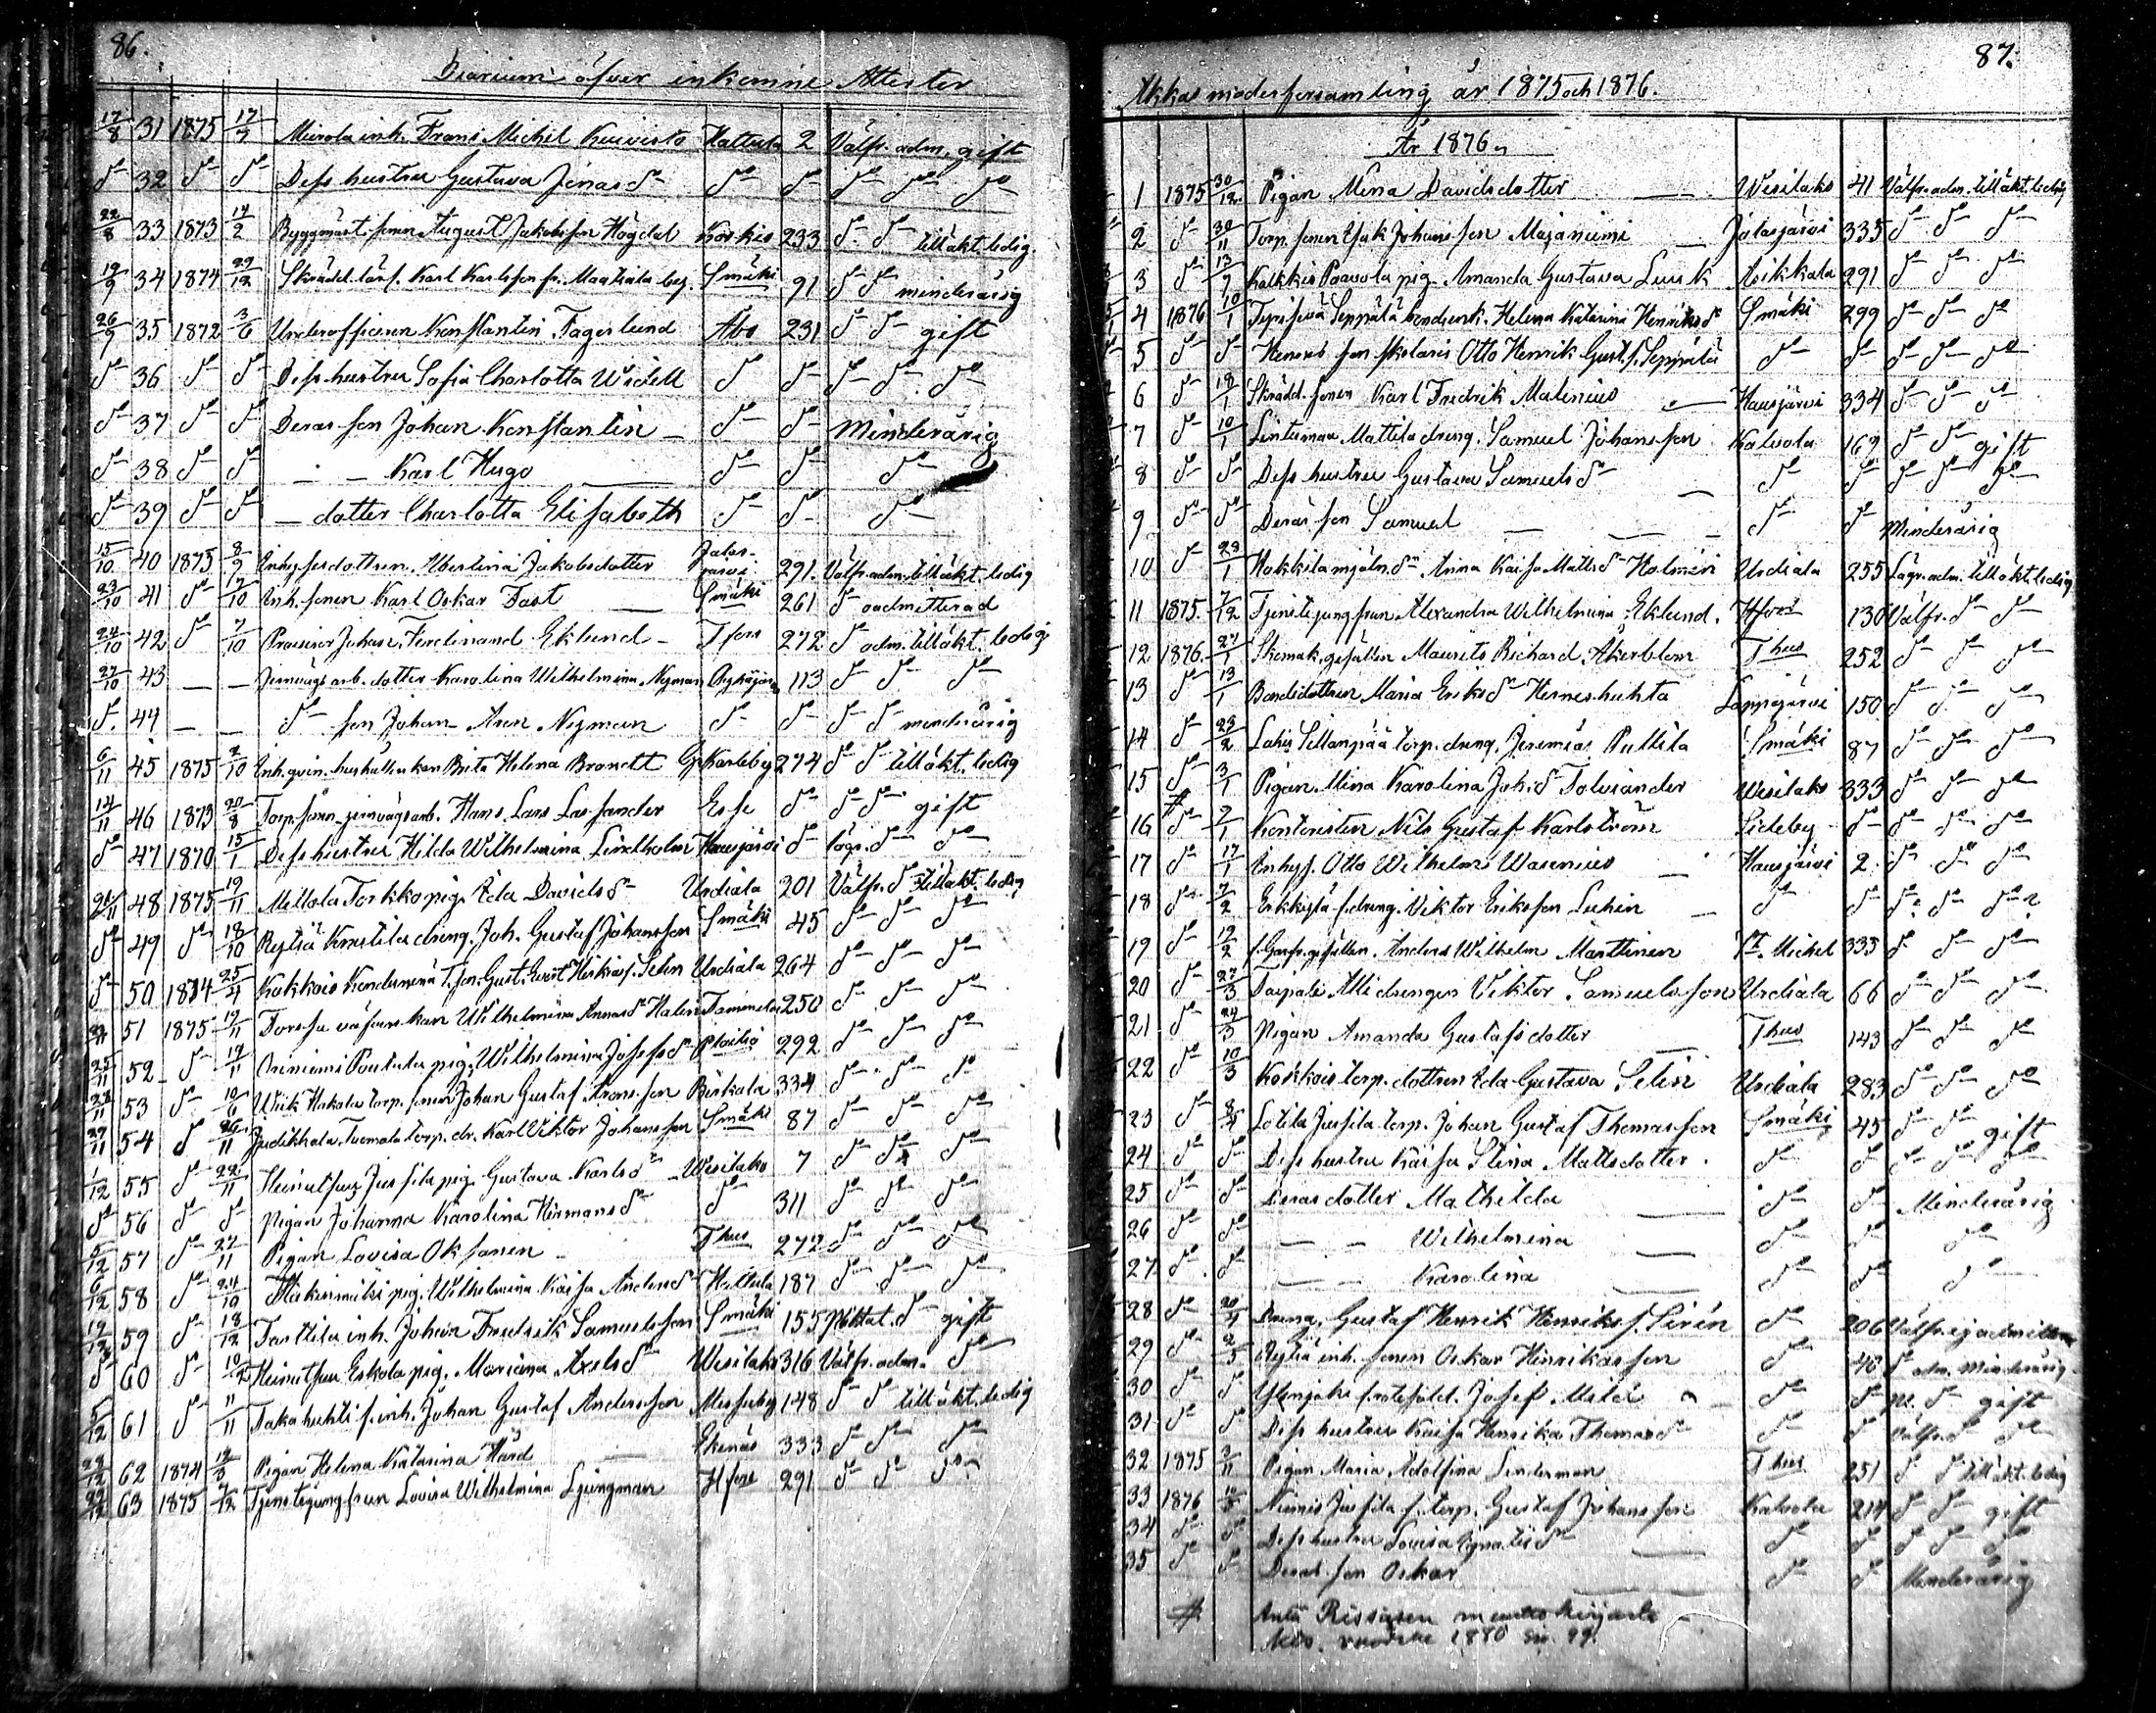 86.
Diarium öfver inkomne Attester
17/8 31 1875 17/7 Murola inh. Frans Michel Kuivisto Hattula 2 Välfr. adm. gift
do 32 do do Dess hustru Gustava Jonas do do do do do do
22/8 33 1873 14/2 Byggmäst. sonen August Jakobsson Högdal Koskis 233 do do till äkt. ledig
19/9 34 1874 29/12 Skrädd. lärl. Karl Karlsson fr. Maatiala by. Smäki 91 do do minderårig
26/9 35 1872 3/6 Underofficeren Konstantin Fagerlund Åbo 231 do do gift
do 36 do do Dess hustru Sofia Charlotta Widell do do do do do
do 37 do do Deras son Johan Konstantin — do do Minderårig
do 38 do do — — Karl Hugo — do do do
do 39 do do — dotter Charlotta Elisabeth do do do
15/10 40 1875 8/9 Inhys. dottren Albertina Jakobsdotter Jalasjärvi 291 Välfr. adm. till äkt. ledig
23/10 41 do 17/10 Inh. sonen Karl Oskar Fast — Smäki 261 do oadmitterad
24/10 42 do 7/10 Johan Ferdinand Eklund — Tfors 272 do adm. till äkt. ledig
27/10 43 — — Jernvägsarb. dotter Karolina Wilhelmina Nyman 113 do do do
do 44 — — do son Johan Aron Nyman do do do do minderårig
6/11 45 1875 7/10 Inh. qvin. hushållerskan Brita Helena Brandt G. Karleby 274 do do till äkt. ledig
14/11 46 1873 20/8 Torp. sonen jernvägsarb. Hans Lars Lassander Esse do do do gift
do 47 1870 15/1 Dess hustru Hilda Wilhelmina Lindholm Hausjärvi do lägr. do do
21/11 48 1875 19/11 Mellola Torkko pig. Eda Davids do Urdiala 201 Välfr. do till äkt. ledig
do 49 do 18/10 Rytiä Knuutila dreng. Joh. Gustaf Johansson Smäki 45 do do do
do 50 1874 25/4 Kokkois T. son Gust. Evert Heikkis. Selin Urdiala 264 do do do
51 1875 19/11 Forssa väfverskan Wilhelmina Annas do Halin Tammela 250 do do do
25/11 52 do 19/11 Niniemi Pentula pig. Wilhelmina Josefs do 292 do do do
28/11 53 do 10/6 Wiik Hakala torp. sonen Johan Gustaf Fransson Birkala 334 do do do
29/11 54 do 26/11 Judikkala Tuomala torp. dr. Karl Viktor Johansson Smäki 87 do do do
1/12 55 do 22/11 Heinulhus Jussila pig. Gustava Karls do Wesilaks 7 do do do
do 56 do do Pigan Johanna Karolina Hermans do do 311 do do do
5/12 57 do 27/11 Pigan Lovisa Oksanen — Thus 272 do do do
6/12 58 do 24/10 Hakinmäki pig. Wilhelmina Kaisa Anders do Hattula 187 do do do
19/12 59 do 18/12 Tarttila inh. Johan Fredrik Samuelsson Smäki 155 do gift
do 60 do 10/12 Eskola pig. Mariana Axels do Wesilaks 316 Välfr. adm. do
5/12 61 do 11/11 Jakahuhti s. inh. Johan Gustaf Andersson Messuby 148 do do till äkt. ledig
28/12 62 1874 12/3 Pigan Helena Katarina Hård — Ekenäs 333 do do do
29/12 63 1875 7/12 Tjenstejungfrun Lovisa Wilhelmina Ljungman Hfors 291 do do do
87.
Akkas moderförsamling år 1875 och 1876.
År 1876.
1 1875 30/12 Pigan Mina Davidsdotter — Wesilaks 41 Välfr. adm. till äkt. ledig
2 do 30/11 Torp. sonen Isak Johansson Majaniemi — Jalasjärvi 335 do do do
3 do 13/9 Kalkkis Paavola pig. Amanda Gustava Lusk Asikkala 291 do do do
4 1876 10/1 Seppälä Helena Katarina Henriks do Smäki 299 do do do
5 do do Hennes son skolaris Otto Henrik Gust. s. Seppälä do do do do do
6 do 18/1 Skrädd. sonen Karl Fredrik Malenius — Hausjärvi 334 do do do
7 do 10/1 Lintumaa Mattila dreng. Samuel Johansson Kalvola 169 do do gift
8 do do Dess hustru Gustava Samuels do — do do do do do
9 do do Deras son Samuel — — do do Minderårig
10 do 23/1 Hakkila mjöln. do Anna Kaisa Matts do Holmén Urdiala 255 Lägr. adm. till äkt. ledig
11 1875 7/12 Tjenstejungfrun Alexandra Wilhelmina Eklund. Hfors 130 Välfr. do do
12 1876 27/1 Skomak. gesällen Maurits Richard Åkerblom Thus 252 do do do
13 do 13/1 Bondedottren Maria Eriks do Herneshuhta Lappajärvi 150 do do do
14 do 23/2 Lahis Sillanpää torp. dreng. Jeremias Puttila Smäki 87 do do do
15 do 3/1 Pigan Mina Karolina Joh. do Tolvsander Wesilaks 333 do do do
16 do 7/1 Kontoristen Nils Gustaf Karlström Sideby do do do do
17 do 17/1 Inhys. Otto Wilhelm Wasenius Hausjärvi 2 do do do
18 do 7/2 Erkkylä s. dreng. Viktor Eriksson Luhin — do do do do do
19 do 19/2 Anders Wilhelm Marttinen St. Michel 335 do do do
20 do 27/3 Taipale Alli drengen Viktor Samuelsson Urdiala 66 do do do
21 do 24/3 Pigan Amanda Gustafsdotter — Thus 143 do do do
22 do 10/3 Kokkois torp. dottren Eda Gustava Selin Urdiala 283 do do do
23 do Lotila Jussila torp. Johan Gustaf Thomasson Smäki 45 do do gift
24 do do Dess hustru Kaisa Stina Mattsdotter do do do do do
25 do do Deras dotter Mathilda — do do Minderårig
26 do do — — Wilhelmina — do do do
27 do do — — Karolina — do do do
28 do 20/4 Dreng. Gustaf Henrik Henrikss. Sirén do 206 Välfr. ej admitter
29 do 2/5 Rytiä inh. sonen Oskar Henrikasson do 40 do adm. minderårig
30 do do Ylenjoki Josef Meldi do do do gift
31 do do Dess hustru Kaisa Henrika Thomas do do do välfr. do do
32 1875 3/11 Pigan Maria Adolfina Linderman Thus 251 do do till äkt. ledig
33 1876 Niemis Jussila s. torp. Gustaf Johansson Kalvola 214 do do gift
34 do do Dess hustru Lovisa Ignatii do do do do do do
35 do do Deras son Oskar — do do Minderårig
# Antti Rissasen muuttokirja
vuodelta 1880 siv. 99.